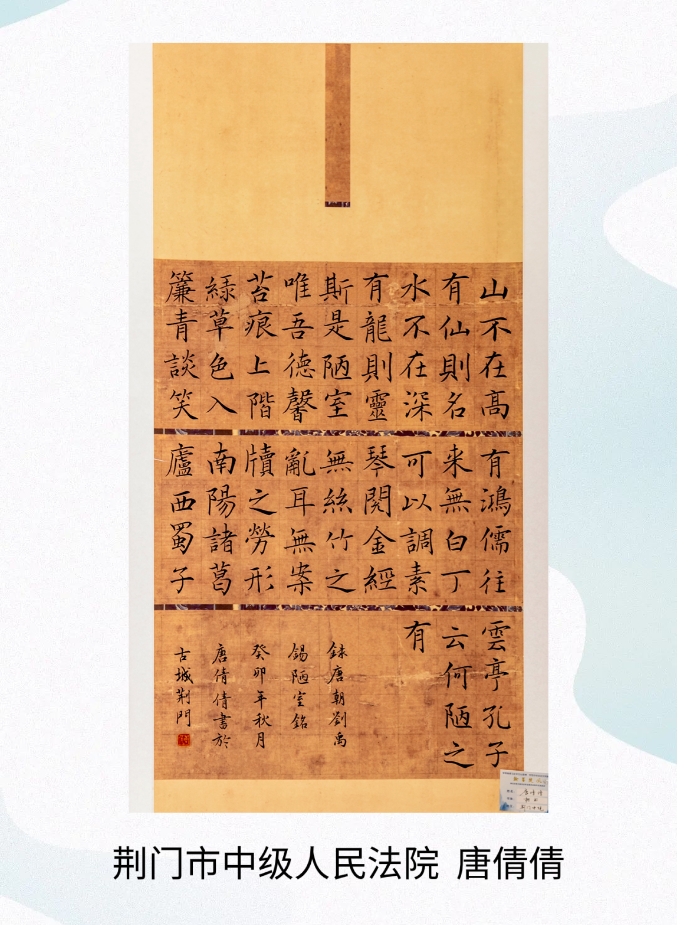 山不在高
有仙則名
水不在深
有龍則靈
斯是陋室
唯吾德馨
苔痕上階
緑草色入
簾青談笑
有鴻儒往
来無白丁
可以調素
琴閱金經
無絲竹之
亂耳無案
牘之勞形
南陽諸葛
廬西蜀子
雲亭孔子
云何陋之
有
録唐朝劉禹
錫陋室銘
癸卯年秋月
唐倩倩書於
古城荆門
荆门市中级人民法院 唐倩倩